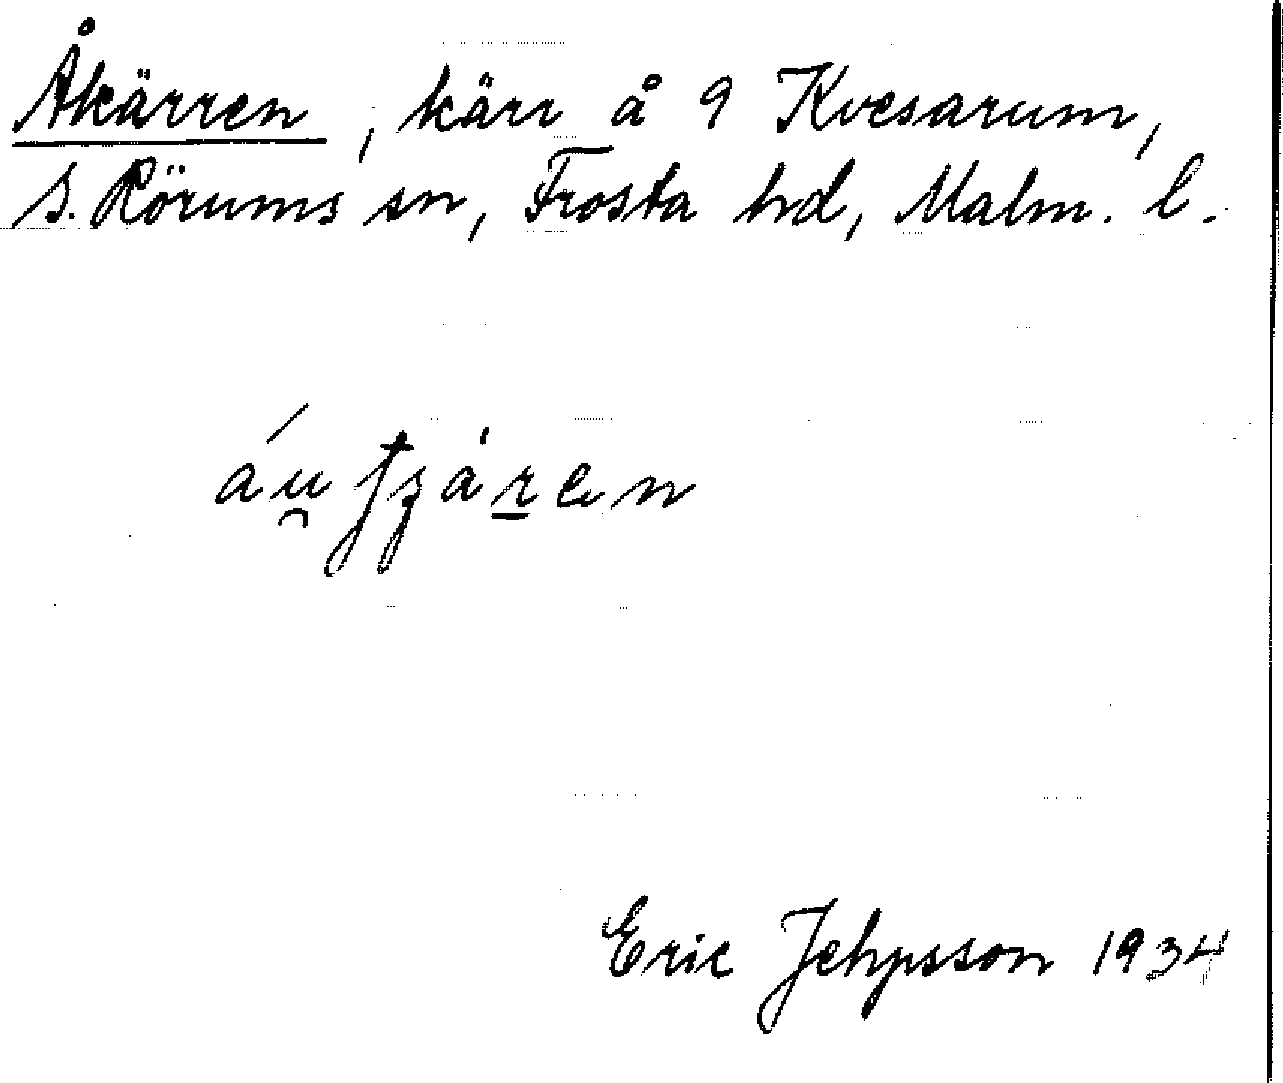 Åkärren, kärr å 9 Kvesarum,
S. Rörums sn, Frosta hd, Malm. l.
Eric Jehpsson 1934